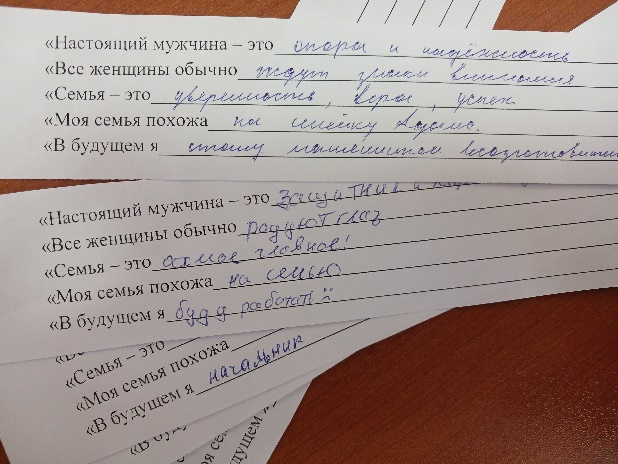 «Настоящий мужчина – это опора и надёжность
«Все женщины обычно ждут знаки внимания
«Семья – это уверенность, вера, успех
«Моя семья похожа на семейку Адамс.
«В будущем я стану
«Настоящий мужчина – это защитник и
«Все женщины обычно радуют глаз
«Семья – это самое главное!
«Моя семья похожа на семью
«В будущем я буду работать
«Семья – это
«Моя семья похожа
«В будущем я начальник
«В буду